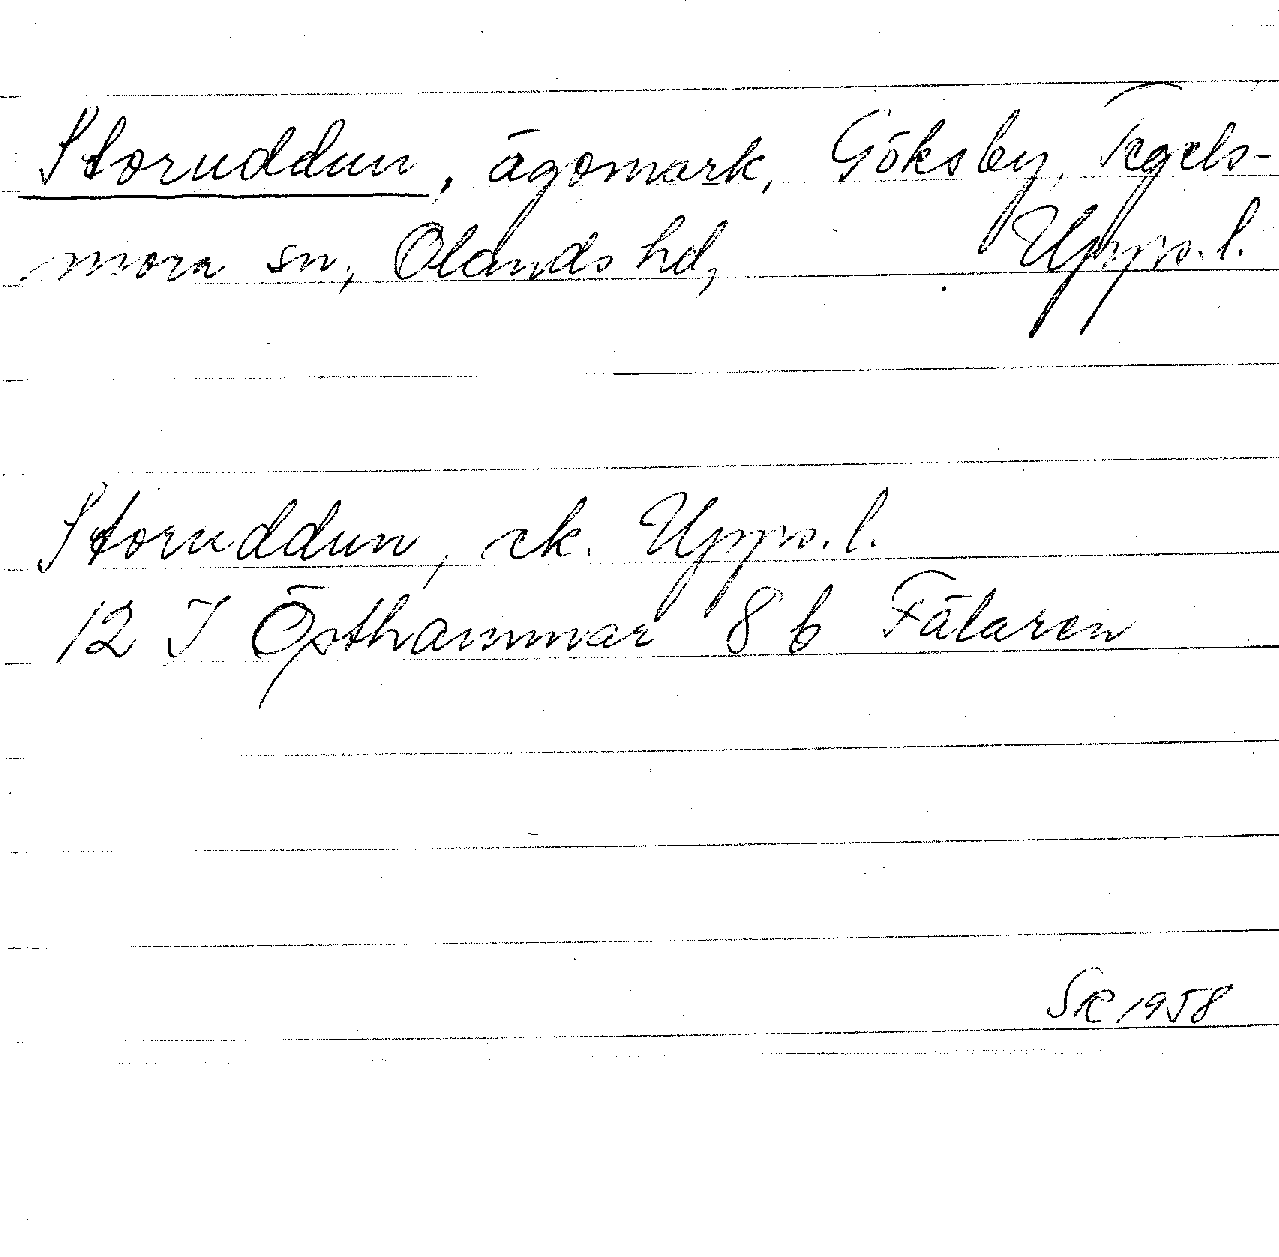 Storuddun, ägomark, Göksby, Tegels-
mora sn, Olands hd, Upps. l.
Storuddun, ek. Upps. l.
12 I Östhammar 8 b Fälaren
SR 1958